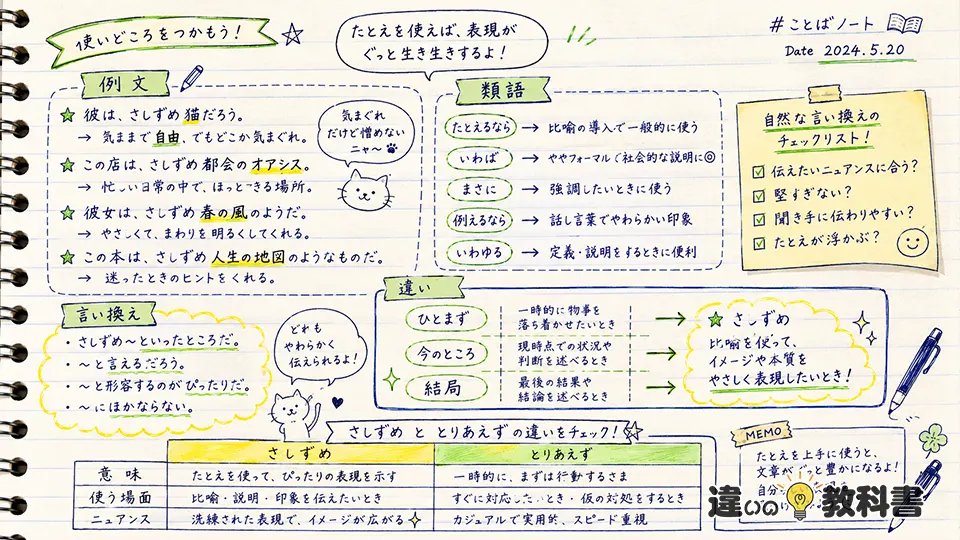 使いどころをつかもう！
たとえを使えば、表現が
ぐっと生き生きするよ！
#ことばノート
Date 2024.5.20
例文
彼は、さしずめ猫だろう。
→ 気ままで自由、でもどこか気まぐれ。
この店は、さしずめ都会のオアシス。
→ 忙しい日常の中で、ほっとできる場所。
彼女は、さしずめ春の風のようだ。
→ やさしくて、まわりを明るくしてくれる。
この本は、さしずめ人生の地図のようなものだ。
→ 迷ったときのヒントをくれる。
気まぐれ
だけど憎めない
ニャ〜
類語
たとえるなら → 比喩の導入で一般的に使う
いわば → ややフォーマルで社会的な説明に◎
まさに → 強調したいときに使う
例えるなら → 話し言葉でやわらかい印象
いわゆる → 定義・説明をするときに便利
自然な言い換えの
チェックリスト！
伝えたいニュアンスに合う？
堅すぎない？
聞き手に伝わりやすい？
たとえが浮かぶ？
言い換え
・さしずめ〜といったところだ。
・〜と言えるだろう。
・〜と形容するのがぴったりだ。
・〜にほかならない。
どれも
やわらかく
伝えられるよ！
違い
ひとまず
一時的に物事を
落ち着かせたいとき
今のところ
現時点での状況や
判断を述べるとき
結局
最後の結果や
結論を述べるとき
さしずめ
比喩を使って、
イメージや本質を
やさしく表現したいとき！
さしずめ と とりあえず の違いをチェック！
さしずめ とりあえず
意味 たとえを使って、ぴったりの表現を示す 一時的に、まずは行動するさま
使う場面 比喩・説明・印象を伝えたいとき すぐに対応したいとき・仮の対処をするとき
ニュアンス 洗練された表現で、イメージが広がる カジュアルで実用的、スピード重視
MEMO
たとえを上手に使うと、
文章がぐっと豊かになるよ！
自分
違いの教科書